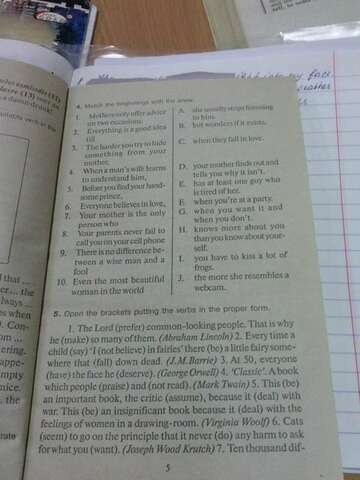 4. Match the beginnings with the ends.
1. Mothers only offer advice on two occasions:
2. Everything is a good idea till
3. The harder you try to hide something from your mother,
4. When a man's wife learns to understand him,
5. Before you find your handsome prince,
6. Everyone believes in love,
7. Your mother is the only person who
8. Your parents never fail to call you on your cell phone
9. There is no difference between a wise man and a fool
10. Even the most beautiful woman in the world
A. she usually stops listening to him.
B. but wonders if it exists.
C. when they fall in love.
D. your mother finds out and tells you why it isn't.
E. has at least one guy who is tired of her.
F. when you're at a party.
G. when you want it and when you don't.
H. knows more about you than you know about yourself.
I. you have to kiss a lot of frogs.
J. the more she resembles a webcam.
5. Open the brackets putting the verbs in the proper form.
1. The Lord (prefer) common-looking people. That is
why he (make) so many of them. (Abraham Lincoln) 2. Every time a
child (say) 'I (not believe) in fairies' there (be) a little fairy some-
where that (fall) down dead. (J.M. Barrie) 3. At 50, everyone
(have) the face he (deserve). (George Orwell) 4. 'Classic'. A book
which people (praise) and (not read). (Mark Twain) 5. This (be)
an important book, the critic (assume), because it (deal) with
war. This (be) an insignificant book because it (deal) with the
feelings of women in a drawing-room. (Virginia Woolf) 6. Cats
(seem) to go on the principle that it never (do) any harm to ask
for what you (want). (Joseph Wood Krutch) 7. Ten thousand dif-
5